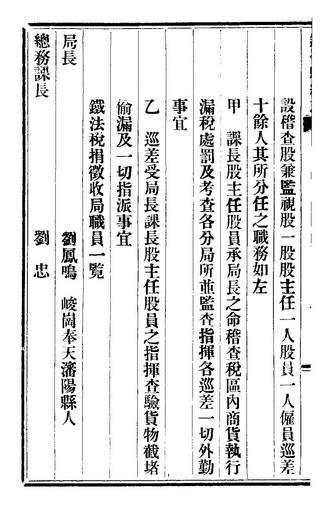 設稽查股兼監視股一股股主任一人股員一人僱員巡差
十餘人其所分任之職務如左
甲　課長股主任股員承局長之命稽查稅區內商貨執行
漏稅處罰及考查各分局所並監查指揮各巡差一切外勤
事宜
乙　巡差受局長課長股主任股員之指揮查驗貨物截堵
偷漏及一切指派事宜
鐵法稅捐徵收局職員一覽
局長　劉鳳鳴　峻崗奉天瀋陽縣人
總務課長　劉　忠